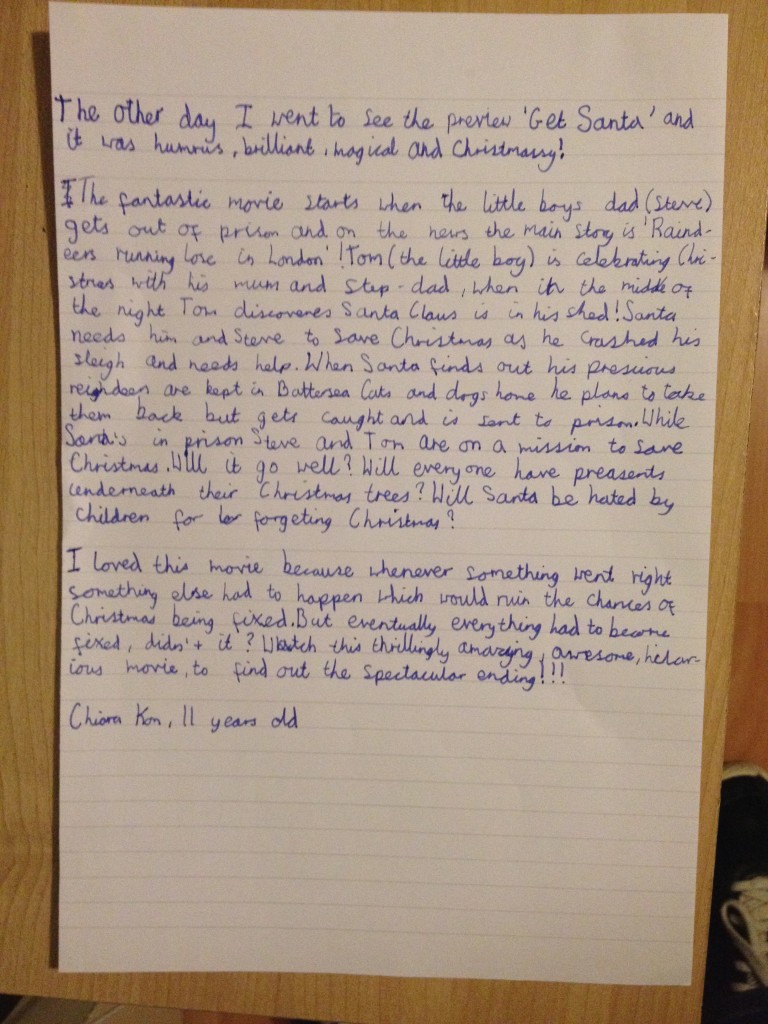 The other day I went to see the preview 'Get Santa' and
it was humrus, brilliant, magical and Christmassy!
The fantastic movie starts when the little boys dad (Steve)
gets out of prison and on the news the main story is 'Raind-
eers running lose in London'! Tom (the little boy) is celebrating Chri-
stmas with his mum and step-dad, when in the middle of
the night Tom discoveres Santa Claus is in his shed! Santa
needs him and Steve to save Christmas as he crashed his
sleigh and needs help. When Santa finds out his presious
reighdeers are kept in Battersea Cats and dogs home he plans to take
them back but gets caught and is sent to prison. While
Santa's in prison Steve and Tom are on a mission to save
Christmas. Will it go well? Will everyone have preasents
underneath their Christmas trees? Will Santa be hated by
children for forgeting Christmas?
I loved this movie because whenever something went right
something else had to happen which would ruin the chances of
Christmas being fixed. But eventually everything had to become
fixed, didn't it? Watch this thrillingly amazing, awesome, hilar-
ious movie, to find out the spectacular ending!!!
Chiara Kon, 11 years old